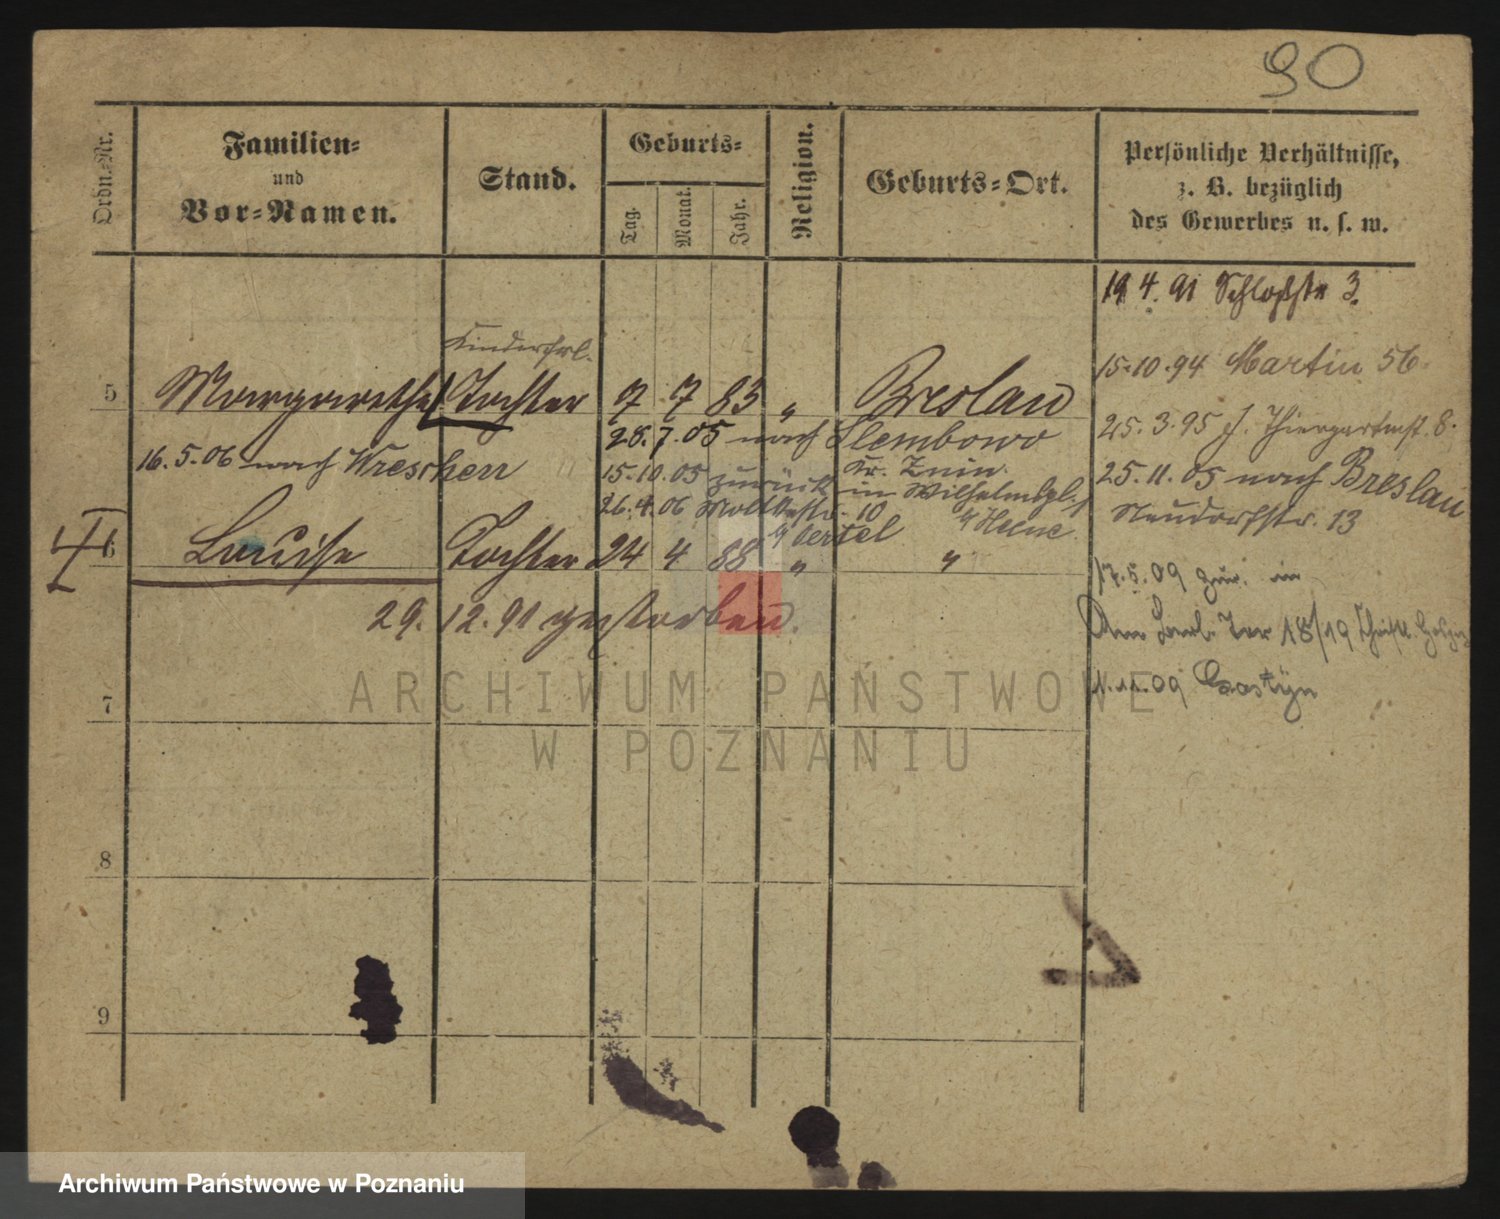 90
Ordn.-Nr.
Familien-
und
Vor-Namen.
Stand.
Geburts-
Tag.
Monat.
Jahr.
Religion.
Geburts-Ort.
Persönliche Verhältnisse,
z. B. bezüglich
des Gewerbes u. s. w.
19 4. 91 Schloßstr 3.
Kinderfrl.
15.10.94 Martin 56.
5 Margarethe Tochter 7 7 83 " Breslau
25.3.95 Thiergartenst. 8.
28.7.05 nach Slembowo
Kr. Znin.
16.5.06 nach Wreschen
15.10.05 zurück in Wilhelmspl.
25.11.05 nach Breslau
Neudorfstr. 13
26.4.06 Moltkestr. 10
b/ Oertel
b/ Heine
6 Louise Tochter 24 4 88 " "
17.5.09 zur. in
29. 12. 91 gestorben.
18/19
11.09 Gostyn
7
8
9
ARCHIWUM PAŃSTWOWE
W POZNANIU
Archiwum Państwowe w Poznaniu